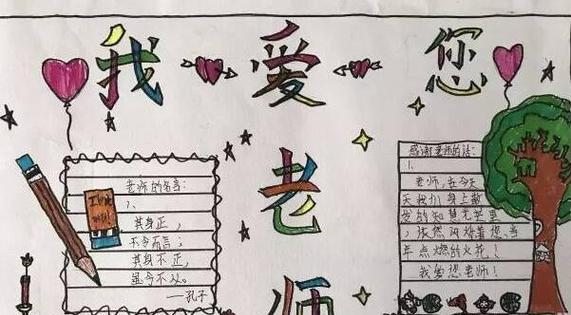 我爱您
老师
老师的名言:
1、
其身正,
不令而言;
其身不正,
虽令不从。
——孔子
感谢老师的话:
1、
老师,在今天
天我们身上散
发的知慧光芒里
,依然闪烁着您当
年点燃的火花!
我爱您老师!